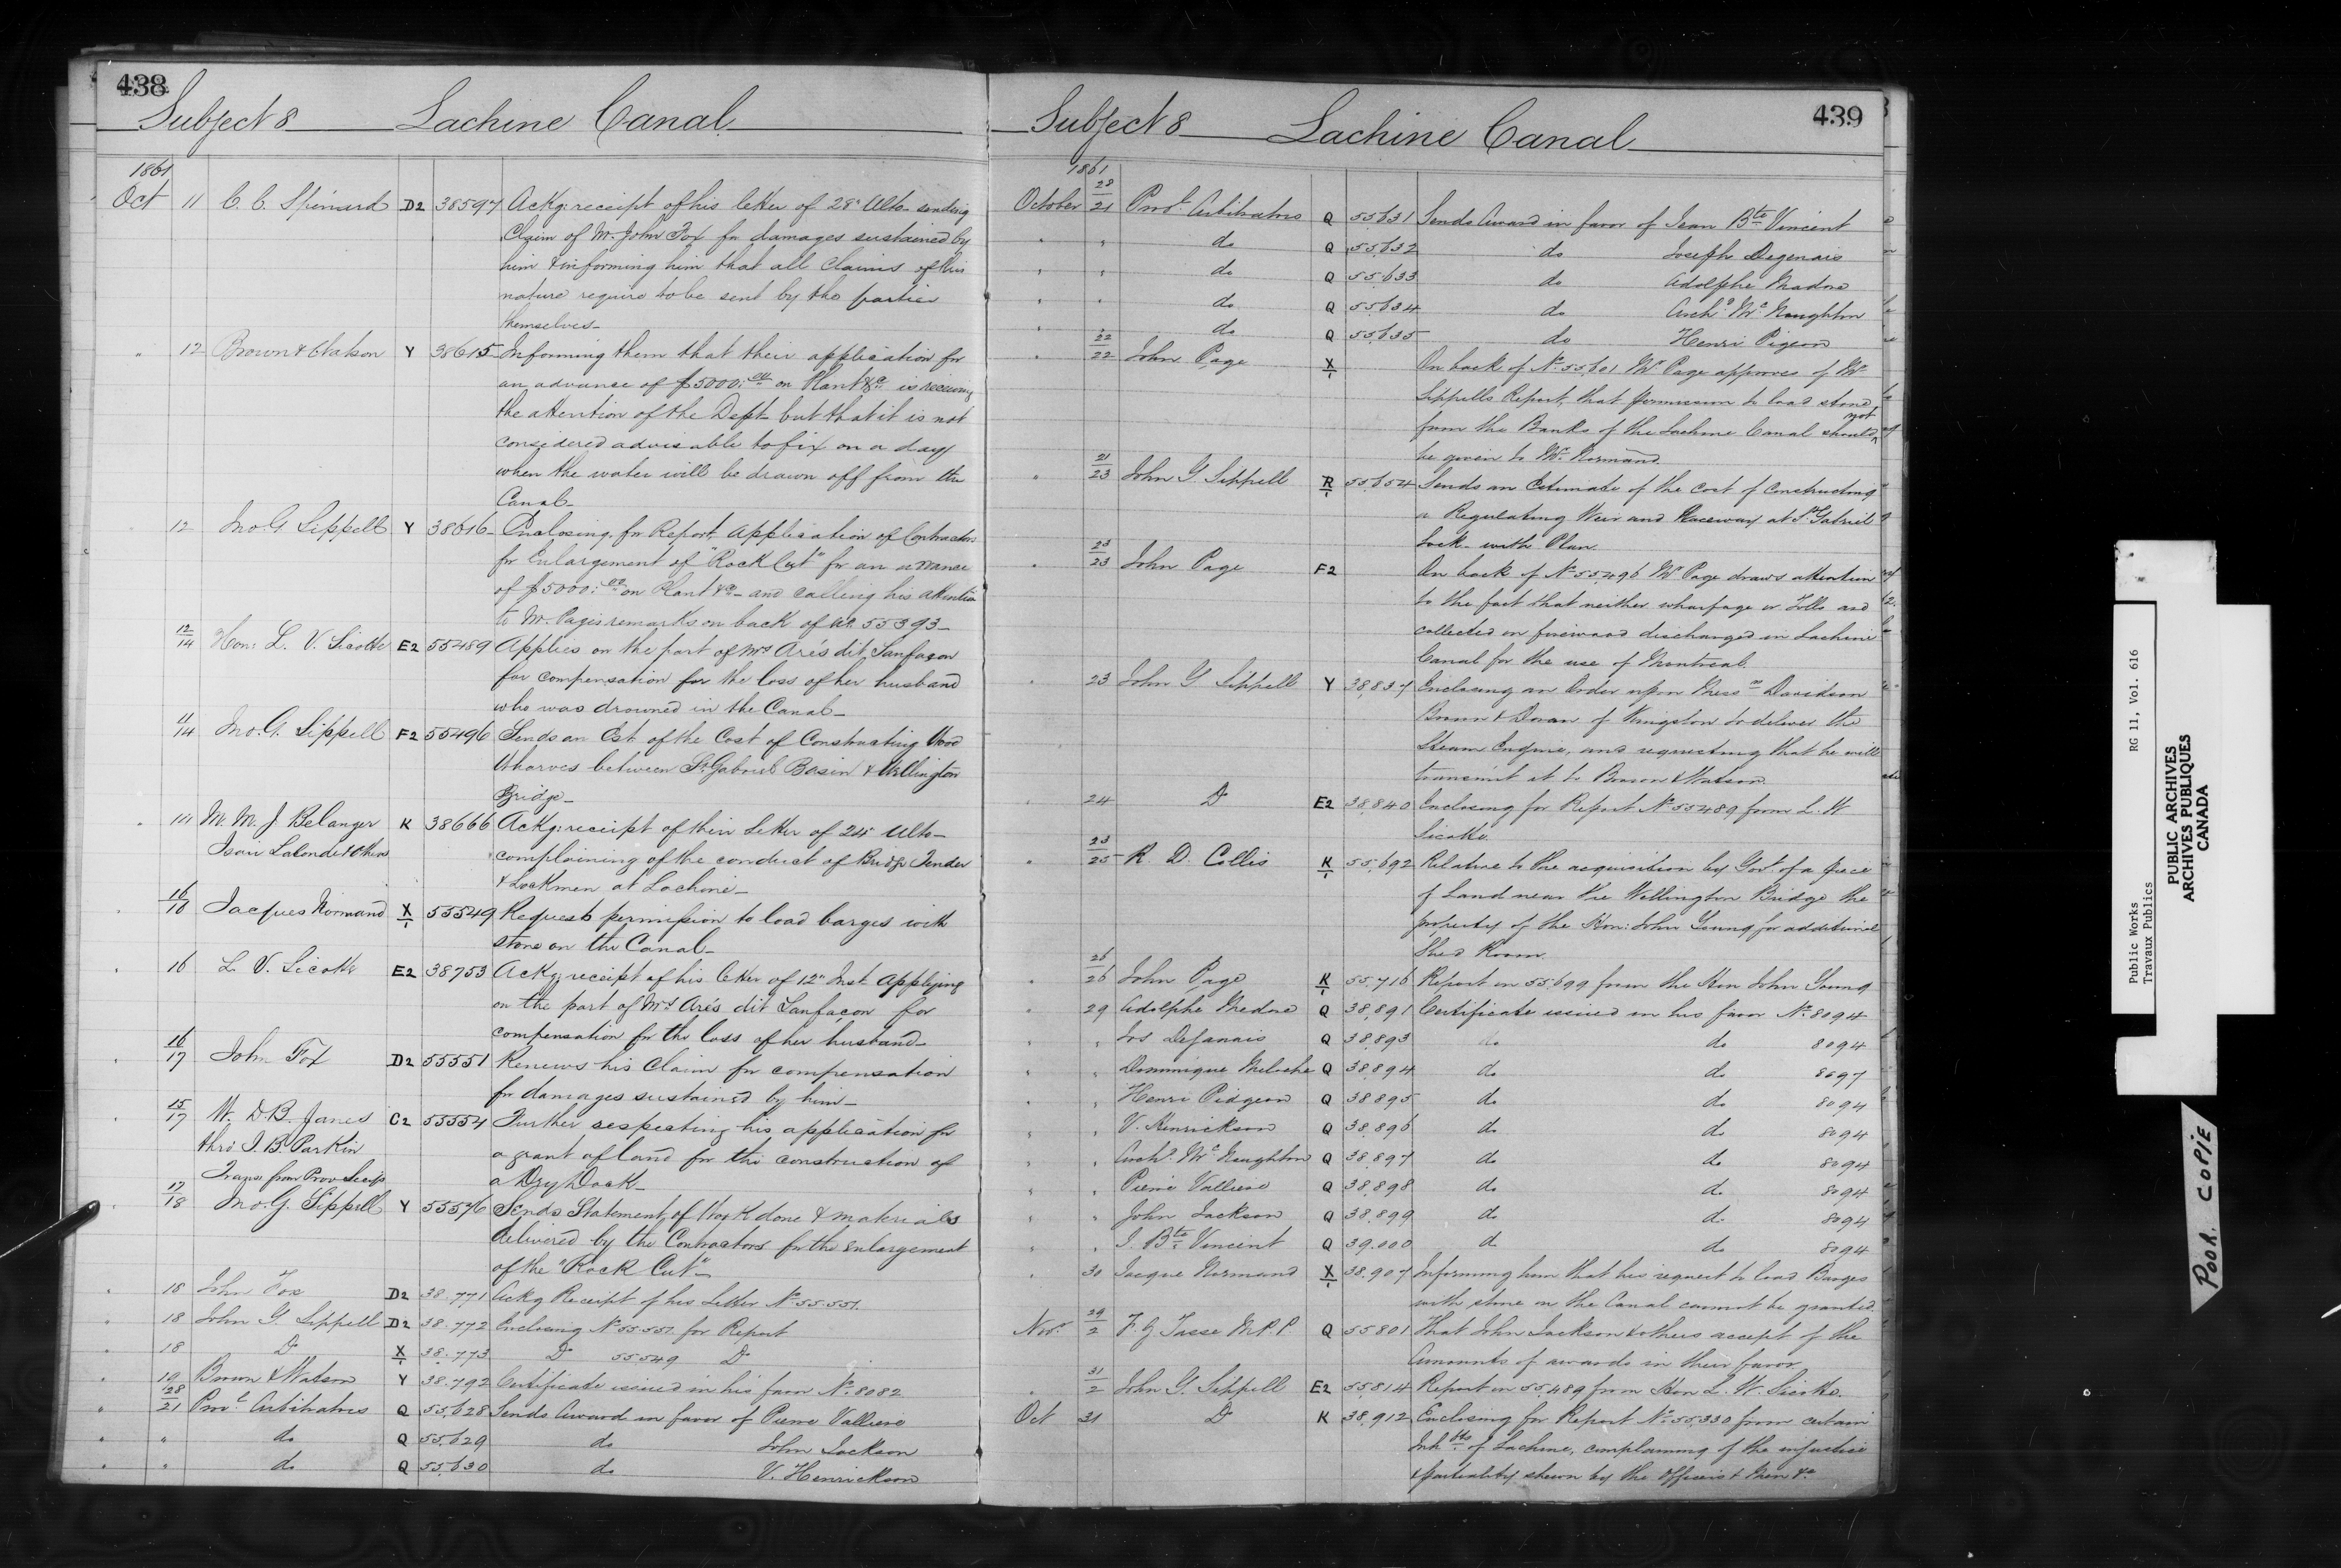 438
Subject 8 Lachine Canal
1861
Oct 11 C. C. Spénard D2 38597 Ackg: receipt of his letter of 28th Ulto sending
Claim of Mr. John Fox for damages sustained by
him & informing him that all Claims of this
nature require to be sent by the parties
themselves_
" 12 Brown & Watson Y 38615 Informing them that their application for
an advance of $5000.00 on Plant &c. is receiving
the attention of the Dept. but that it is not
considered advisable to fix on a day
when the water will be drawn off from the
Canal_
12 Jno. G. Sippell Y 38616 Enclosing, for Report, Application of Contractors
for Enlargement of "Rock Cut" for an advance
of $5000.00 on Plant &c_ and calling his attention
to Mr. Page's remarks on back of No. 55393_
12/14 Hon: L. V. Sicotte E2 55489 Applies on the part of Mrs Arés dit Sanfaçon
for compensation for the loss of her husband
who was drowned in the Canal_
11/14 Jno. G. Sippell F2 55496 Sends an Est. of the Cost of Constructing Wood
Wharves between St. Gabriel Basin & Wellington
Bridge_
" 14 M. M. J. Belanger K 38666 Ackg: receipt of their Letter of 24th Ulto_
Isaie Lalonde & others complaining of the conduct of Bridge Tender
& Lockmen at Lachine_
16/16 Jacques Normand X/1 55549 Requests permission to load barges with
stone on the Canal_
" 16 L. V. Sicotte E2 38753 Ackg: receipt of his letter of 12th Inst. Applying
on the part of Mrs Arés dit Sanfaçon for
compensation for the loss of her husband_
" 16/17 John Fox D2 55551 Renews his Claim for compensation
for damages sustained by him_
" 15/17 W. D. B. Janes C2 55554 Further respecting his application for
thro' I. B. Parkin a grant of land for the construction of
Trans from Prov. Sec a Dry Dock_
" 17/18 Jno. G. Sippell Y 55576 Sends Statement of Work done & materials
delivered by the Contractors for the enlargement
of the "Rock Cut"_
" 18 John Fox D2 38.771 Ackg Receipt of his Letter No 55.551
" 18 John G. Sippell D2 38.772 Enclosing No 55551 for Report
" 18 Do X/1 38.773 Do 55549 Do
" 19 Brown & Watson Y 38.792 Certificate issued in his favor No. 8082
" 28/21 Provl Arbitrators Q 55,628 Sends Award in favor of Pierre Valliere
" " do Q 55,629 do John Jackson
" " do Q 55,630 do V. Henrickson
439
Subject 8 Lachine Canal
1861
October 28/21 Provl Arbitrators Q 55,631 Sends Award in favor of Jean Bte Vincent
" " do Q 55,632 do Joseph Degenais
" " do Q 55,633 do Adolphe Madore
" " do Q 55,634 do Archd McNaughton
" do Q 55,635 do Henri Pigeon
" 22/22 John Page X/1 On back of No 55,601 Mr Page approves of Mr
Sippells Report, that permission to load stone
from the Banks of the Lachine Canal should not
be given to Mr. Normand.
" 21/23 John G Sippell R/1 55,654 Sends an Estimate of the cost of constructing
a Regulating Weir and Raceway at St. Gabriel
Lock_ with Plan.
" 23/23 John Page F2 On back of No 55,496 Mr Page draws attention
to the fact that neither wharfage or Tolls are
collected on firewood discharged in Lachine
Canal for the use of Montreal.
" 23 John G Sippell Y 38,837 Enclosing an Order upon Messrs Davidson
Doran of Kingston to deliver the
Steam Engine, and requesting that he will
transmit it to Brown & Watson.
" 24 Do E2 38,840 Enclosing for Report No 55489 from L. V.
Sicotte.
" 23/25 R. D. Collis K/1 55,692 Relative to the acquisition by Govt. of a piece
of Land near the Wellington Bridge the
property of the Hon: John Young for additional
Shed Room.
" 26/26 John Page K/1 55,716 Report on 55,699 from the Hon John Young
" 29 Adolphe Medore Q 38,891 Certificate issued in his favor No 8094
" " Jos Dejanais Q 38,893 do do 8094
" " Dominique Meloche Q 38,894 do do 8697
" " Henri Pidgeon Q 38,895 do do 8094
" " V. Henrickson Q 38,896 do do 8094
" " Archd. McNaughton Q 38,897 do do 8094
" " Pierre Valliere Q 38,898 do do 8094
" " John Jackson Q 38,899 do do 8094
" " J. Bte Vincent Q 39.000 do do 8094
" 30 Jacque Normand X/1 38.907 Informing him that his request to load Barges
with stone on the Canal cannot be granted.
Nov. 29/2 F. Z Tasse M.P.P. Q 55801 That John Jackson & others accept of the
Amounts of awards in their favor.
" 31/2 John G. Sippell E2 55,814 Report on 55,489 from Hon L. V. Sicotte.
Oct 31 Do K 38,912 Enclosing for Report No 55,330 from certain
Inhbts of Lachine, complaining of the injustice
& partiality shewn by the Officers & Men &c.
Public Works RG 11, Vol. 616
Travaux Publics
PUBLIC ARCHIVES
ARCHIVES PUBLIQUES
CANADA
POOR COPIE